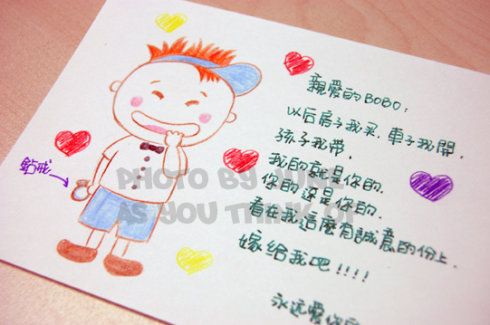 親愛的BOBO：
以后房子我买，車子我開，
孩子我带，
我的就是你的，
你的还是你的，
看在我這麼有誠意的份上，
嫁給我吧！！！！
永远愛你
鉆戒
PHOTO BY
AS YOU THINK OF